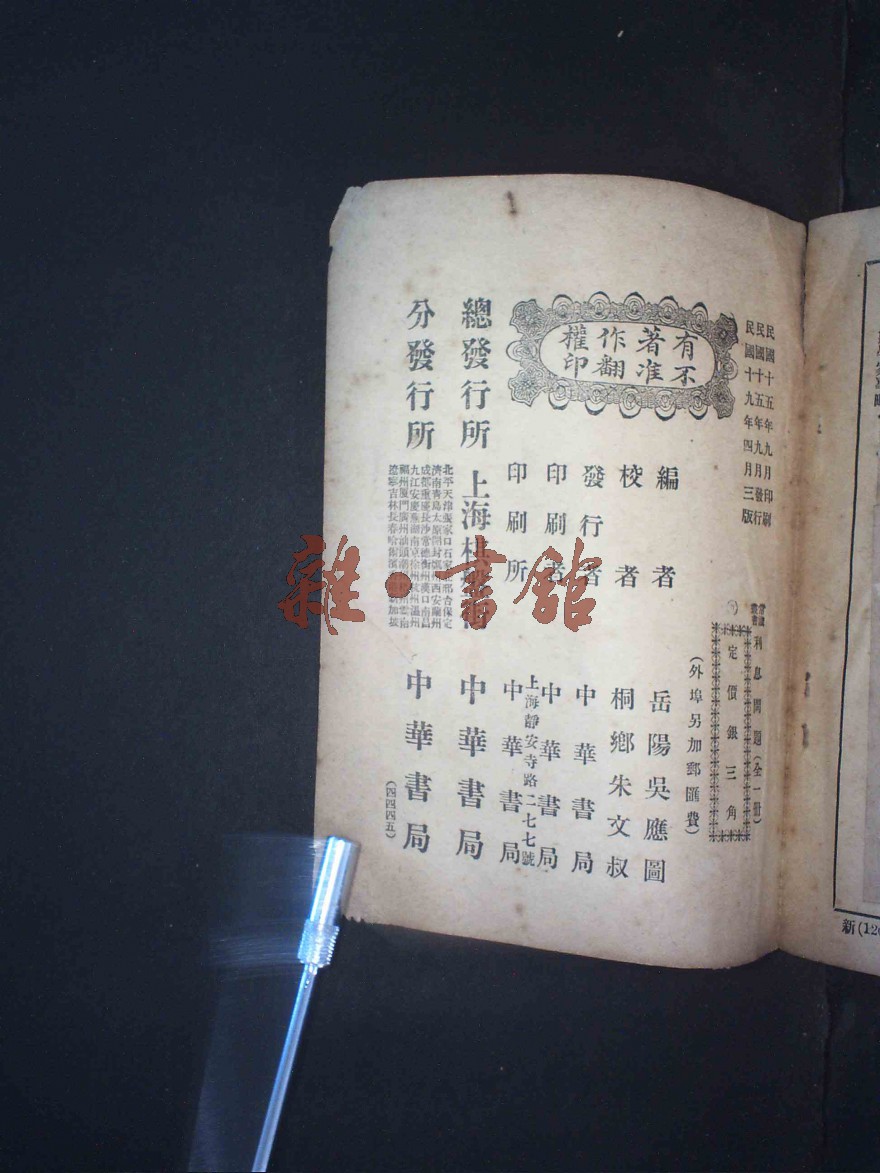 民國十五年九月印刷
民國十五年九月發行
民國十九年四月三版
常識叢書
利息問題(全一册)
定價銀三角
(外埠另加郵匯費)
有著作權
不准翻印
編者 岳陽吳應圖
校者 桐鄉朱文叔
發行者 中華書局
印刷者 中華書局
上海靜安寺路二七七號
印刷所 中華書局
總發行所 上海 中華書局
分發行所
北平天津張家口石家 保定
濟南青島太原開封 西安蘭州
成都重慶長沙常德衡州漢口南昌
九江安慶蕪湖南京徐州杭州溫州
福州廈門廣州汕頭 雲南
遼寧吉林長春哈爾濱 新加坡
中華書局
(四四四五)
雜·書館
新(12